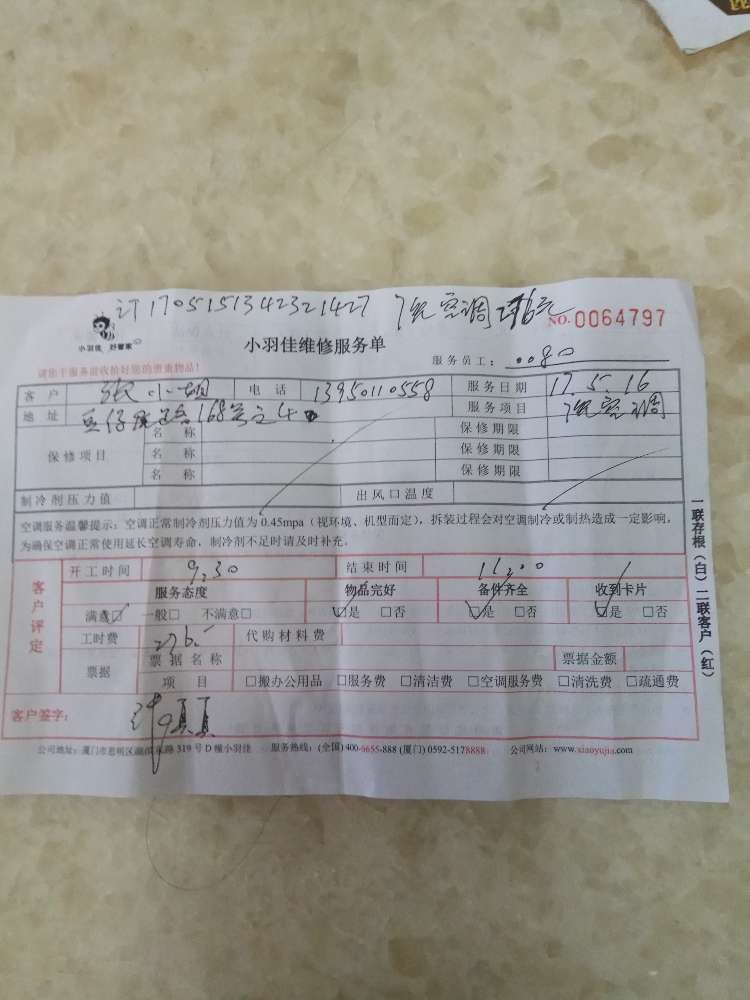 订1705151342321427 洗空调
NO.0064797
小羽佳 好管家
小羽佳维修服务单
服务员工：0080
请您于服务前收拾好您的贵重物品！
客户 张小姐 电话 13950110558 服务日期 17.5.16
地址 168号之 服务项目 洗空调
保修项目
名称 保修期限
名称 保修期限
名称 保修期限
制冷剂压力值 出风口温度
空调服务温馨提示：空调正常制冷剂压力值为0.45mpa（视环境、机型而定），拆装过程会对空调制冷或制热造成一定影响，
为确保空调正常使用延长空调寿命，制冷剂不足时请及时补充。
客户评定
开工时间 9:30 结束时间 11:00
服务态度 物品完好 备件齐全 收到卡片
满意□ 一般□ 不满意□ □是 □否 □是 □否 □是 □否
工时费 276.- 代购材料费
票据 票据名称 票据金额
项目 □搬办公用品 □服务费 □清洁费 □空调服务费 □清洗费 □疏通费
客户签字：
公司地址：厦门市思明区湖滨东路319号D幢小羽佳 服务热线：(全国)400-6655-888 (厦门)0592-5178888 公司网站：www.xiaoyujia.com
一联存根（白）二联客户（红）